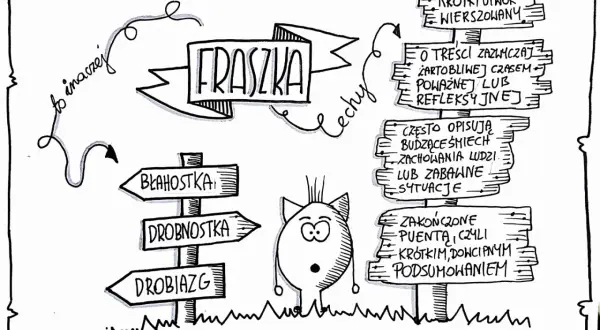 FRASZKA
to inaczej
BŁAHOSTKA
DROBNOSTKA
DROBIAZG
cechy
KRÓTKI UTWÓR
WIERSZOWANY
O TREŚCI ZAZWYCZAJ
ŻARTOBLIWEJ CZASEM
POWAŻNEJ LUB
REFLEKSYJNEJ
CZĘSTO OPISUJĄ
BUDZĄCE ŚMIECH
ZACHOWANIA LUDZI
LUB ZABAWNE
SYTUACJE
ZAKOŃCZONE
PUENTĄ, CZYLI
KRÓTKIM, DOWCIPNYM
PODSUMOWANIEM